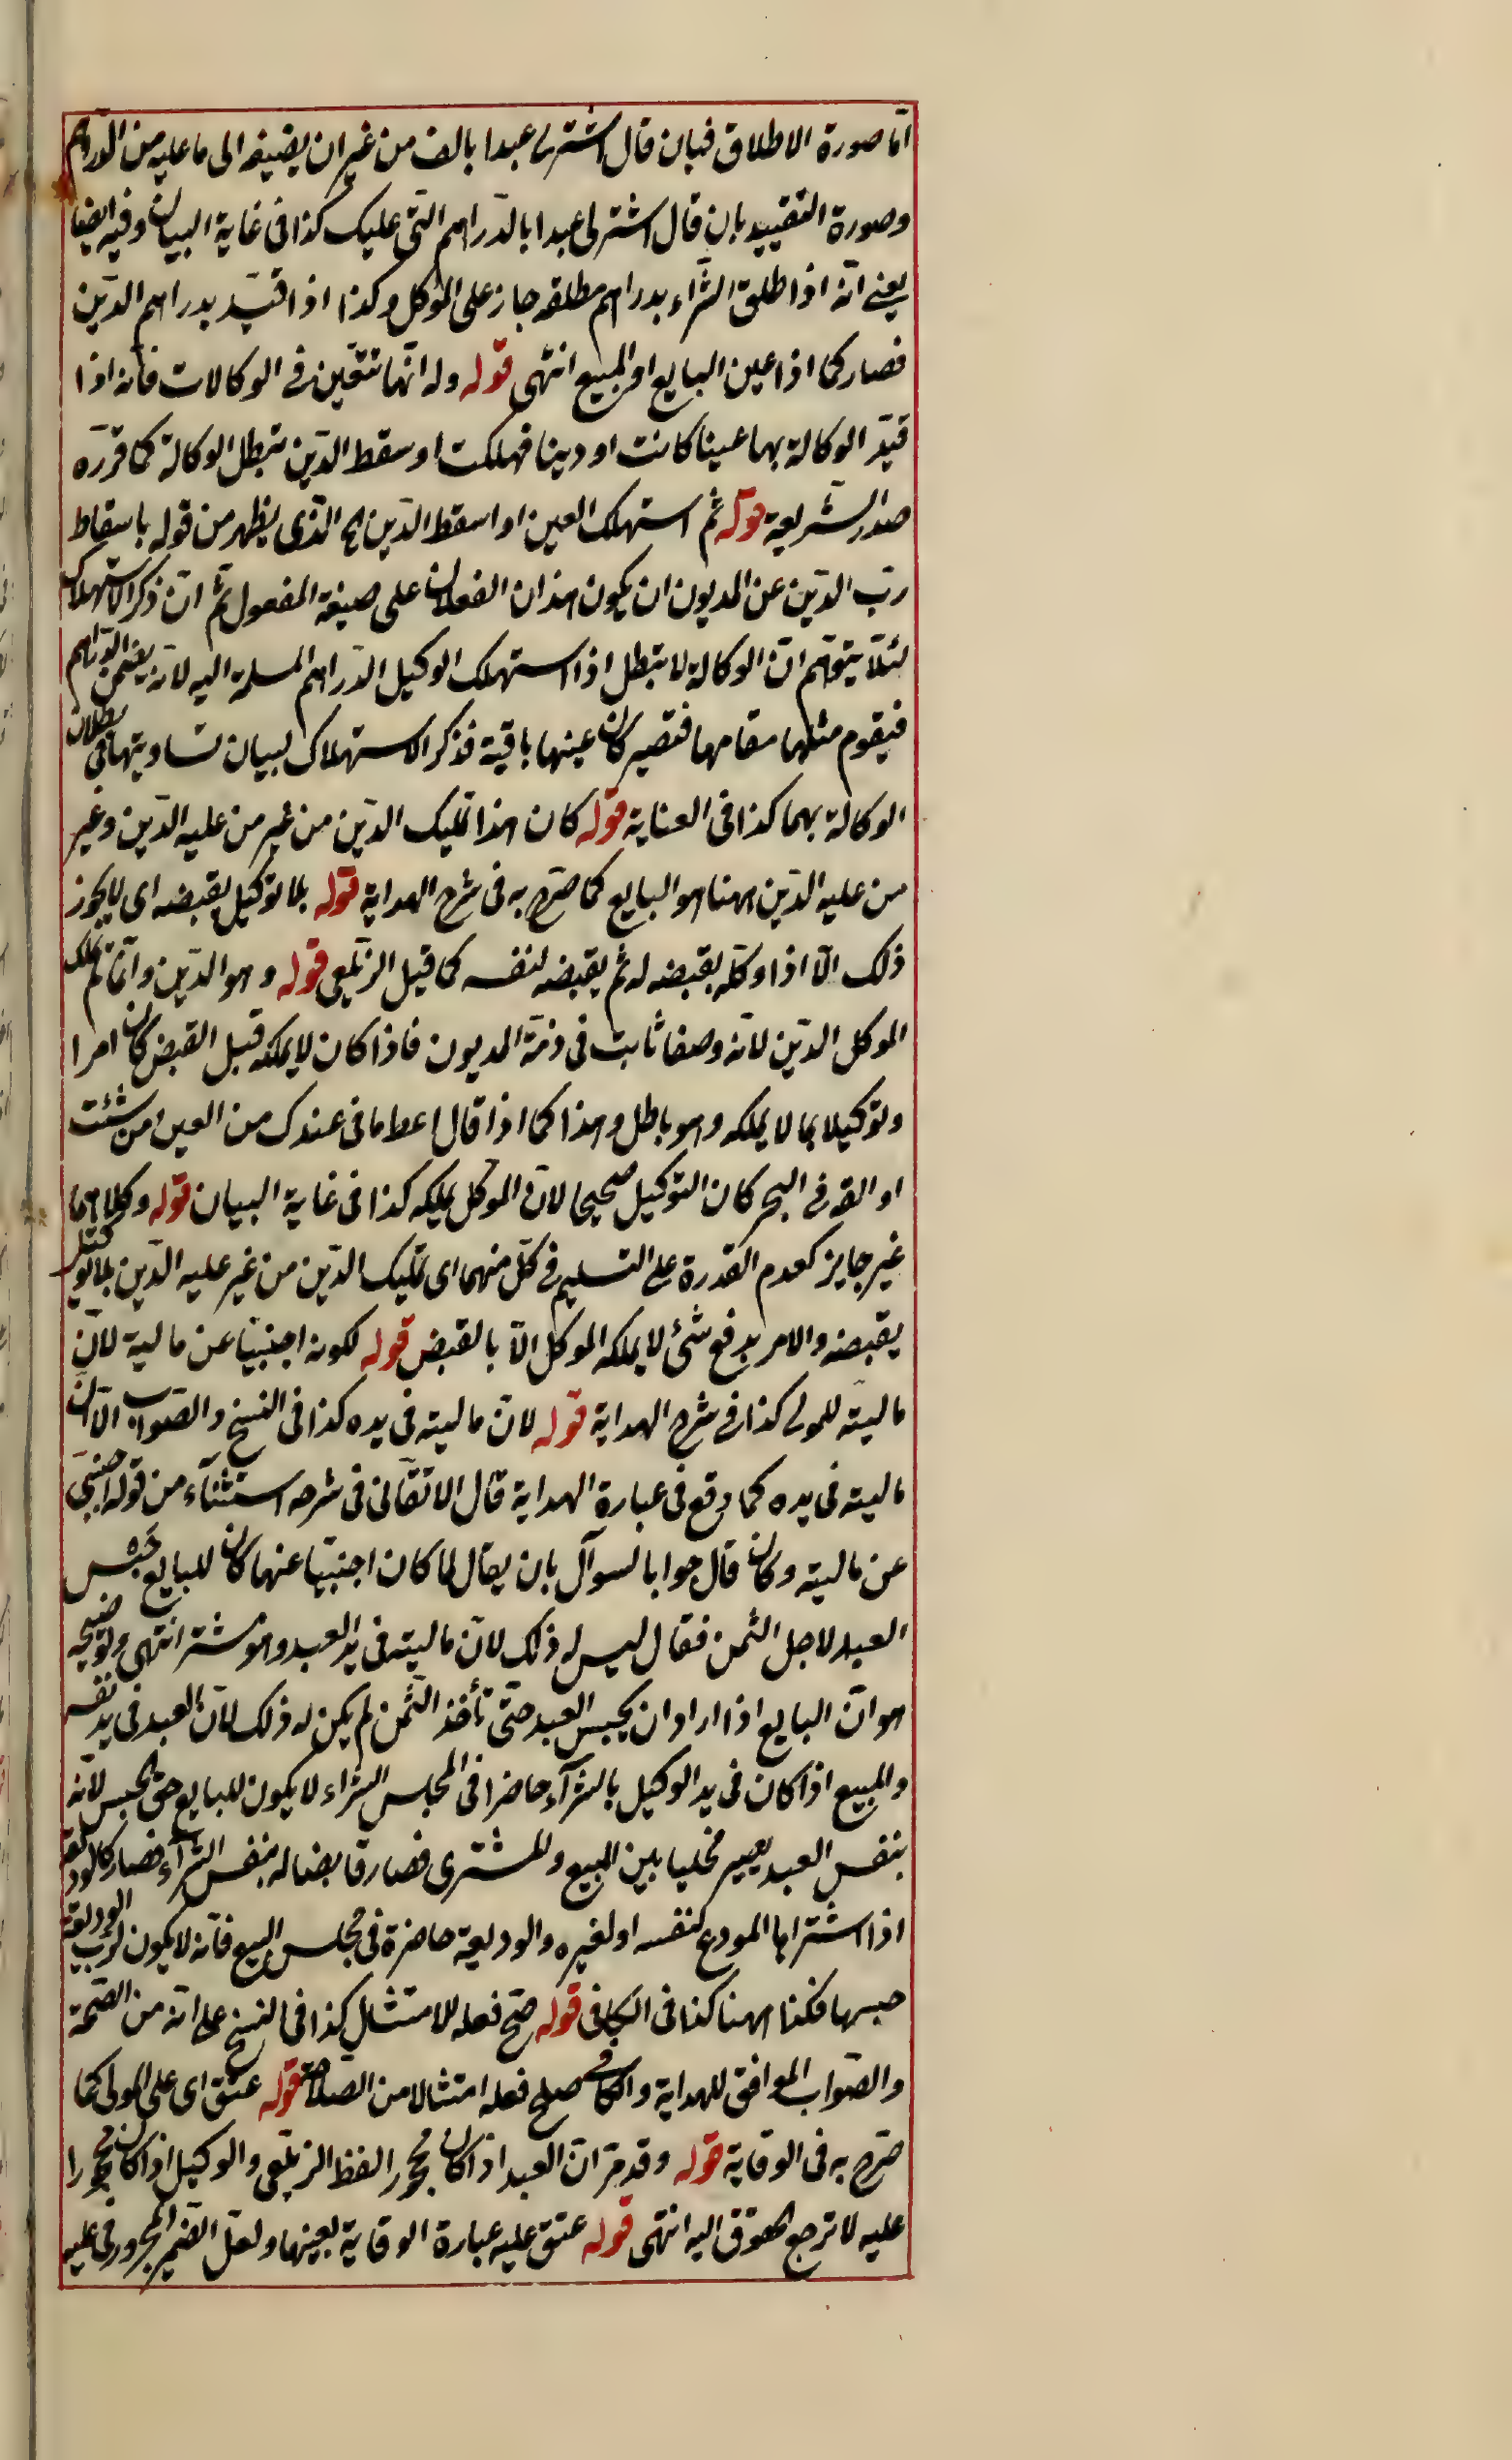 امّا صورة الاطلاق فبان قال اشتر لى عبدا بالف من غير ان يضيفه الى ما عليه من الدراهم
وصورة التقييد بان قال اشتر لى عبدا بالدّراهم التى عليك كذا فى غاية البيان وفيه ايضا
يعنى انّه اذا اطلق الشّراء بدراهم مطلقه جاز على الموكل وكذا اذا قيّد بدراهم الدّين
فصار كما اذا عين البايع او المبيع انتهى قوله وله انّها تتعّين فى الوكالات فانّه اذا
قيّد الوكالة بها عينا كانت او دينا فهلكت او سقط الدّين تبطل الوكالة كما قرّره
صدر الشّريعة قوله ثم استهلك العين او اسقط الدّين الخ الذى يظهر من قوله باسقاط
ربّ الدّين عن المديون ان يكون هذان الفعلان على صيغة المفعول ثم انّ ذكر الاستهلاك
لئلّا يتوّهم انّ الوكالة لا تبطل اذا استهلك الوكيل الدّراهم المسلمة اليه لانّه يضمن الدّراهم
فيقوم مثلها مقامها فتصير كان عينها باقية فذكر الاستهلاك لبيان تساويهما فى بطلان
الوكالة بهما كذا فى العناية قوله كان هذا تمليك الدّين من غير من عليه الدّين وغير
من عليه الدّين ههنا هو البايع كما صّرح به فى شرح الهداية قوله بلا توكيل بقبضه اى لا يجوز
ذلك الّا اذا وكّله بقبضه له ثم يقبضه لنفسه كما قيل الزيلعى قوله وهو الدّين وانّما لم يملك
الموكل الدّين لانّه وصفا ثابت فى ذمّة المديون فاذا كان لا يملكه قبل القبض كان امرا
وتوكيلا بما لا يملكه وهو باطل وهذا كما اذا قال اعط ما فى عندك من العين من شئت
او القه فى البحر كان التوكيل صحيحا لانّ الموكل يملكه كذا فى غاية البيان قوله وكلاهما
غير جايز كعدم القدرة على التسليم فى كلّ منهما اى تمليك الدّين من غير عليه الدّين بلا توكيل
بقبضه والامر بدفع شئ لا يملكه الموكل الّا بالقبض قوله لكونه اجنبيّا عن مالية لانّ
ماليته للمولى كذا فى شرح الهداية قوله لانّ ماليته فى يده كذا فى النسخ والصّواب الّا انّ
ماليته فى يده كما وقع فى عبارة الهداية قال الاتقانى فى شرحه استثناء من قوله اجنبىّ
عن ماليته وكان قال جوابا لسوآل بان يقال لما كان اجنبيّا عنها كان للبايع حبس
العبد لاجل الثمن فقال ليس له ذلك لانّ ماليته فى يد العبد وهو مشتر انتهى وتوضيحه
هو انّ البايع اذا اراد ان يحبس العبد حتّى تأخذ الثّمن لم يكن له ذلك لانّ العبد فى يد نفسه
والمبيع اذا كان فى يد الوكيل بالشرآء حاضرا فى المجلس الشراء لا يكون للبايع حق الحبس لانّه
بنفس العبد يصير مخليا بين المبيع وللمشترى فصار قابضا له بنفس الشرآء فصار كالوديعة
اذا اشتراها المودع لنفسه او لغيره والوديعة حاضرة فى مجلس البيع فانّه لا يكون لربّ الوديعة
حبسها فكذا ههنا كذا فى الكافى قوله صحّ فعله للامتثال كذا فى النسخ على انّه من الصّحة
والصّواب الموافق للهداية والكافى صلح فعله امتثالا من الصّلاح قوله عتق اى على المولى كما
صّرح به فى الوقاية قوله وقد مرّ انّ العبد اذا كان محجورا لفظ الزيلعى والوكيل اذا كان محجورا
عليه لا ترجع الحقوق اليه انتهى قوله عتق عليه عبارة الوقاية بعينها ولعلّ الضّمير المجرور فى عليه